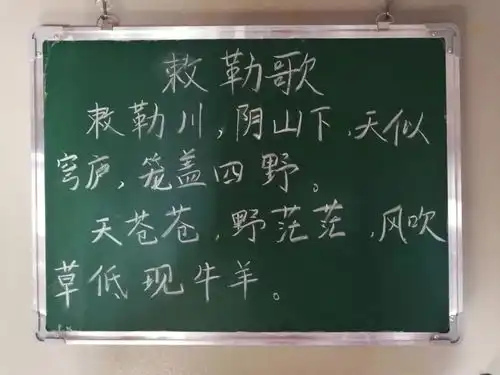 敕勒歌
敕勒川，阴山下，天似
穹庐，笼盖四野。
天苍苍，野茫茫，风吹
草低现牛羊。